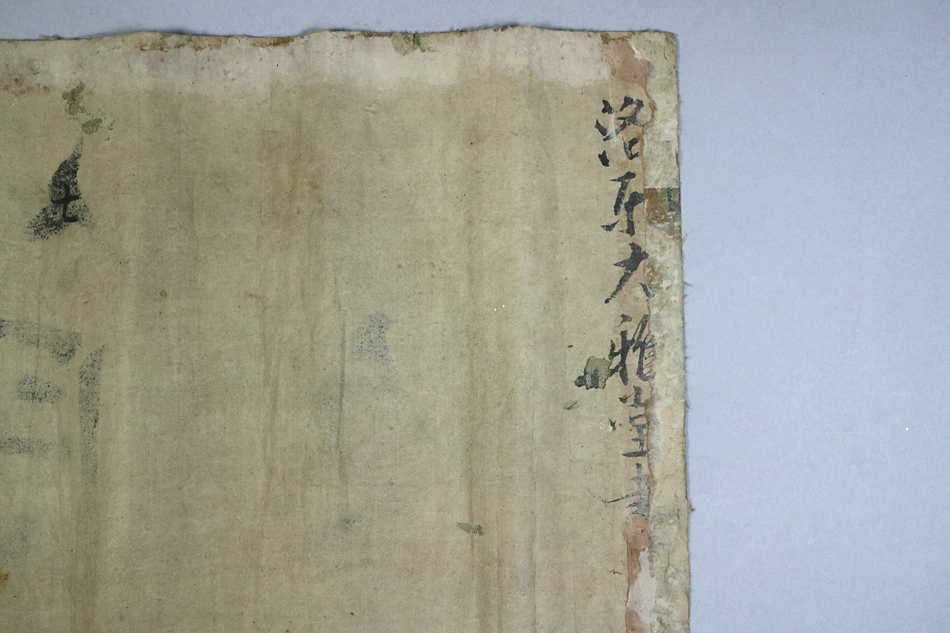 洛東大雅堂